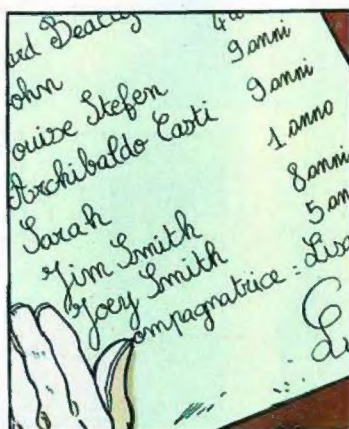 ard Beatty 4 a
ohn 9 anni
ouise Stefen 9 anni
Archibaldo Casti 1 anno
Sarah 8 anni
Jim Smith 5 an
Joey Smith
ompagnatrice = Lisa